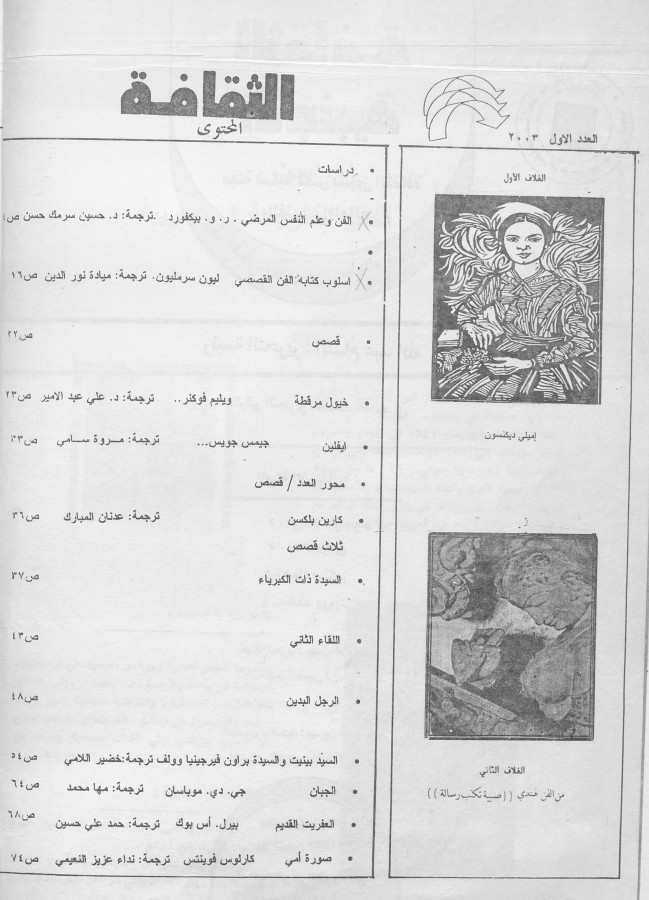 الثقافة
المحتوى
العدد الاول ٢٠٠٣
الغلاف الأول
اميلي ديكنسون
الغلاف الثاني
من الفن هندي ((صبية تكتب رسالة))
دراسات
الفن وعلم النفس المرضي . ر. و. بيكفورد .ترجمة: د. حسين سرمك حسن
اسلوب كتابة الفن القصصي ليون سرمليون. ترجمة: ميادة نور الدين ص١٦
قصص ص٢٢
خيول مرقطة ويليم فوكنر.. ترجمة: د. علي عبد الامير ص٢٣
ايفلين جيمس جويس... ترجمة: مـروة سـامي ص٣٣
محور العدد / قصص
كارين بلكسن ترجمة: عدنان المبارك ص٣٦
ثلاث قصص
السيدة ذات الكبرياء ص٣٧
اللقاء الثاني ص٤٣
الرجل البدين ص٤٨
السيد بينيت والسيدة براون فيرجينيا وولف ترجمة:خضير اللامي ص٥٤
الجبان جي. دي. موباسان ترجمة: مها محمد ص٦٤
العفريت القديم بيرل. أس بوك ترجمة: حمد علي حسين ص٦٨
صورة أمي كارلوس فوينتس ترجمة: نداء عزيز النعيمي ص٧٤